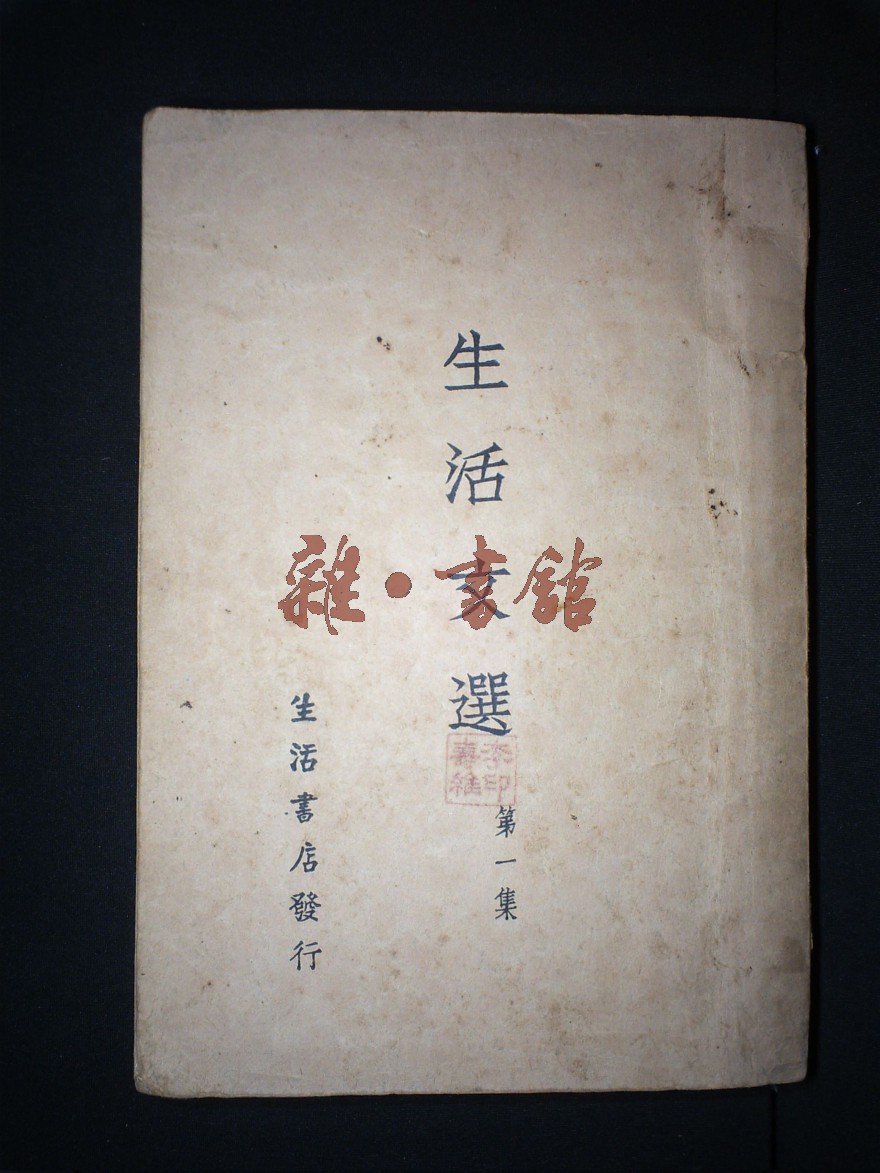 生活文選
第一集
生活書店發行
雜·書館
李印